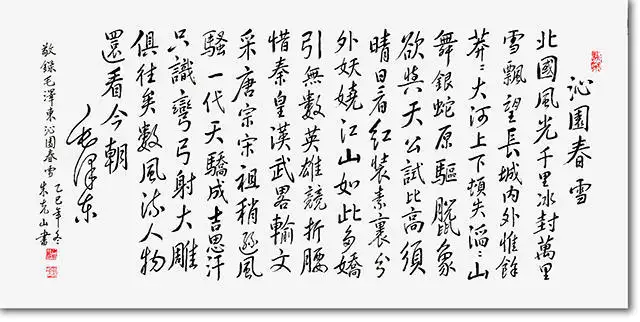 沁園春 雪
北國風光千里冰封萬里
雪飄望長城內外惟餘
莽〻大河上下頓失滔〻山
舞銀蛇原驅臘象
欲與天公試比高須
晴日看紅裝素裹分
外妖嬈江山如此多嬌
引無數英雄競折腰
惜秦皇漢武畧輸文
采唐宗宋祖稍遜風
騷一代天驕成吉思汗
只識彎弓射大雕
俱往矣數風流人物
還看今朝
毛澤東
敬錄毛澤東沁園春雪
乙巳年冬
朱克山書